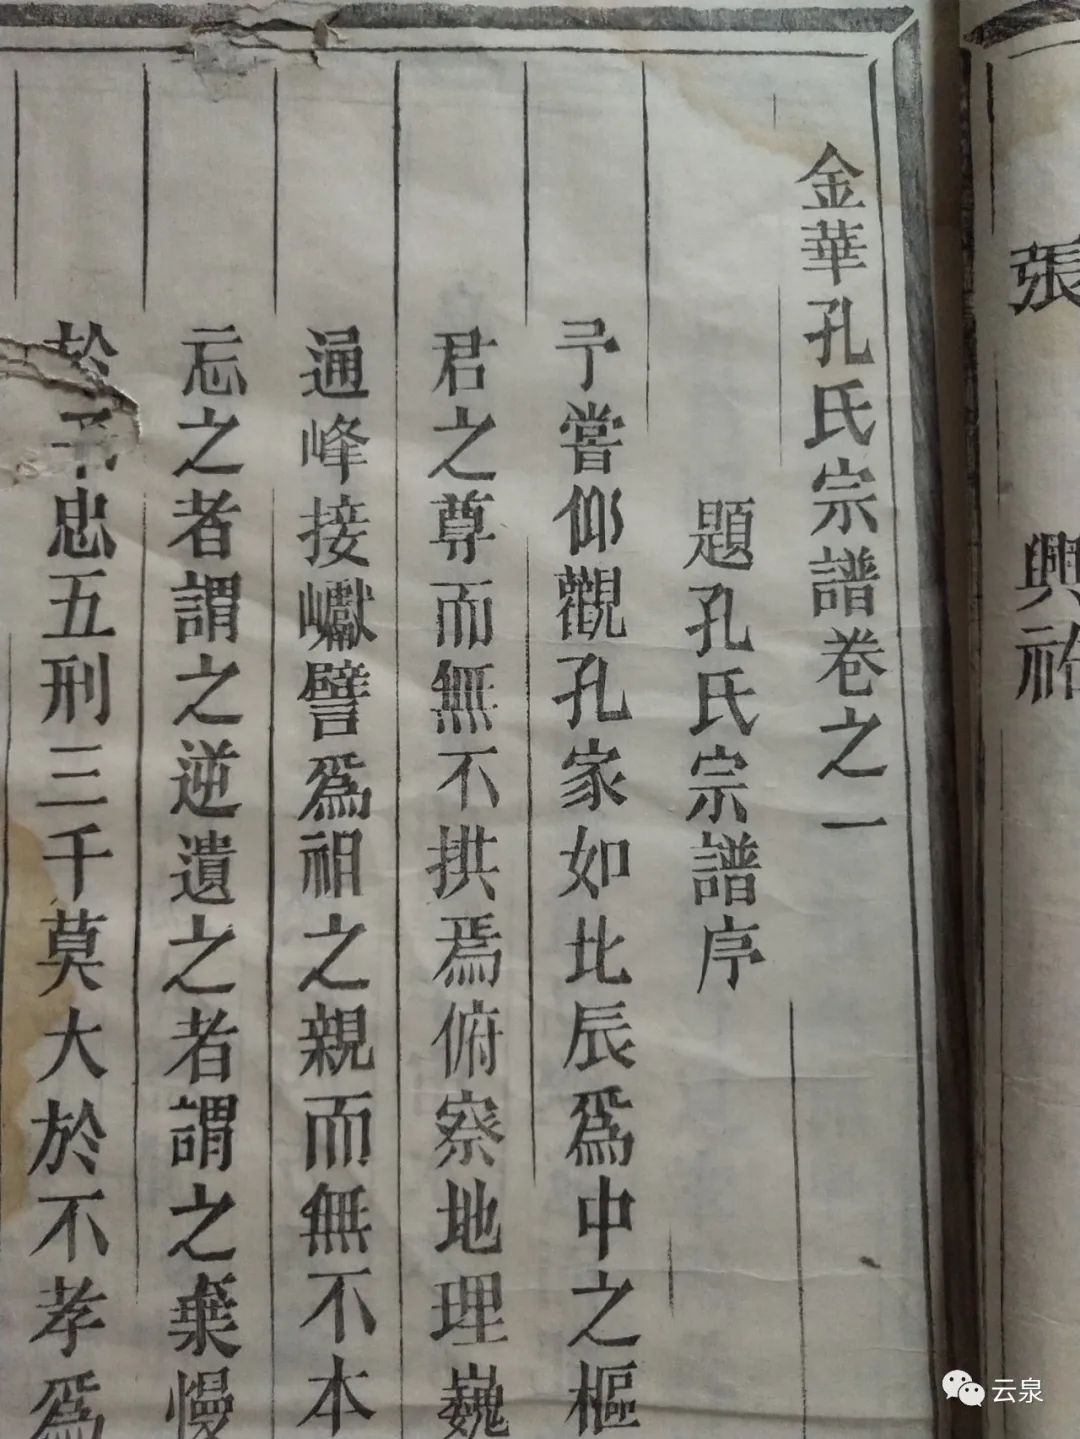 張 興祐
金華孔氏宗譜卷之一
題孔氏宗譜序
予嘗仰觀孔家如北辰爲中之樞
君之尊而無不拱焉俯察地理巍
通峰接巘譬爲祖之親而無不本
忘之者謂之逆遺之者謂之棄慢
於 忠五刑三千莫大於不孝爲
云泉